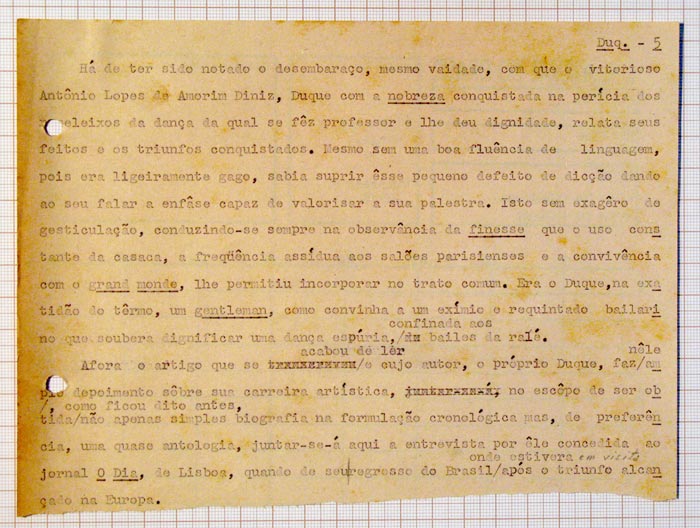 Duq. - 5
Há de ter sido notado o desembaraço, mesmo vaidade, com que o vitorioso
Antônio Lopes de Amorim Diniz, Duque com a nobreza conquistada na perícia dos
remeleixos da dança da qual se fêz professor e lhe deu dignidade, relata seus
feitos e os triunfos conquistados. Mesmo sem uma boa fluência de linguagem,
pois era ligeiramente gago, sabia suprir êsse pequeno defeito de dicção dando
ao seu falar a enfâse capaz de valorisar a sua palestra. Isto sem exagêro de
gesticulação, conduzindo-se sempre na observância da finesse que o uso cons
tante da casaca, a freqüência assídua aos salões parisienses e a convivência
com o grand monde, lhe permitiu incorporar no trato comum. Era o Duque,na exa
tidão do têrmo, um gentleman, como convinha a um exímio e requintado bailari
confinada aos
no que soubera dignificar uma dança espúria,/ bailes da ralé.
acabou de lêr nêle
Afora o artigo que se /e cujo autor, o próprio Duque, faz/am
plo depoimento sôbre sua carreira artística, no escôpo de ser ob
/, como ficou dito antes,
tida/não apenas simples biografia na formulação cronológica mas, de preferên
cia, uma quase antologia, juntar-se-á aqui a entrevista por êle concedida ao
onde estivera em visita
jornal O Dia, de Lisboa, quando de seu regresso do Brasil/após o triunfo alcan
çado na Europa.